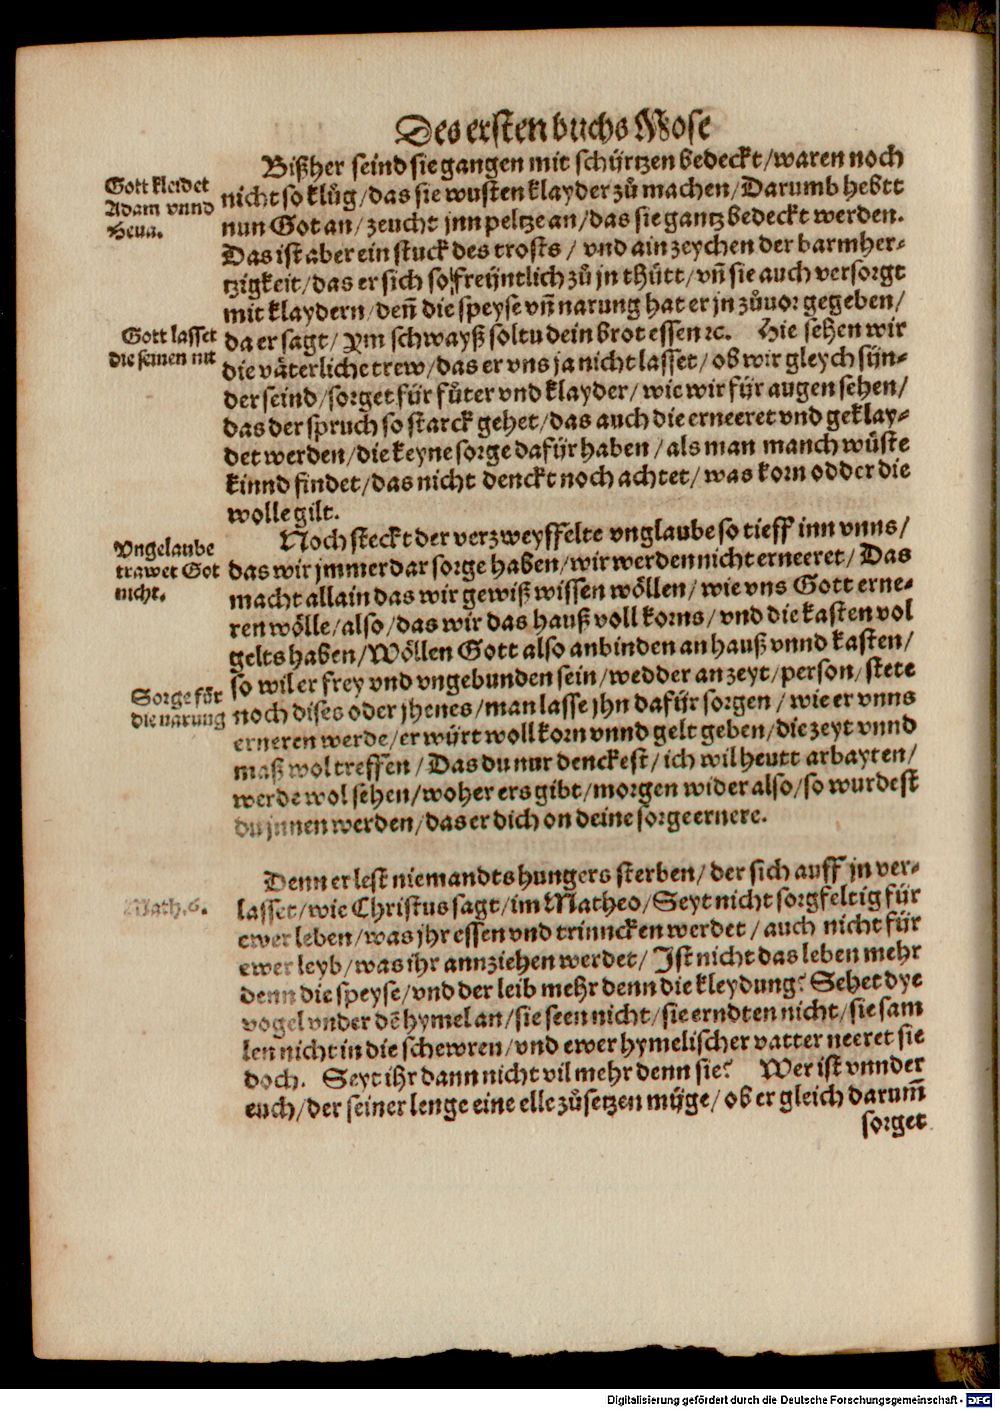 Des ersten buchs Mose
Bißher seind sie gangen mit schürtzen bedeckt/waren noch
Gott kleidet
Adam vnnd
Heua.
nicht so klůg/das sie wusten klayder zů machen/Darumb hebtt
nun Got an/zeucht jnn peltze an/das sie gantz bedeckt werden.
Das ist aber ein stuck des trosts/vnd ain zeychen der barmher-
tzigkeit/das er sich so freüntlich zů jn thůtt/vñ sie auch versorgt
mit klaydern/deñ die speyse vñ narung hat er jn zůuor gegeben/
Gott lasset
die seinen nit
da er sagt/Im schwayß soltu dein brot essen ꝛc. Hie sehen wir
die väterliche trew/das er vns ja nicht lasset/ob wir gleych sün-
der seind/sorget für fůter vnd klayder/wie wir für augen sehen/
das der spruch so starck gehet/das auch die erneeret vnd geklay-
det werden/die keyne sorge dafür haben/als man manch wůste
kinnd findet/das nicht denckt noch achtet/was korn odder die
wolle gilt.
Noch steckt der verzweyffelte vnglaube so tieff inn vnns/
Vngelaube
trawet Got
nicht.
das wir jmmerdar sorge haben/wir werden nicht erneeret/Das
macht allain das wir gewiß wissen wöllen/wie vns Gott erne-
ren wölle/also/das wir das hauß voll korns/vnd die kasten vol
gelts haben/Wöllen Gott also anbinden an hauß vnnd kasten/
so wil er frey vnd vngebunden sein/wedder an zeyt/person/stete
Sorge för
die narung
noch dises oder jhenes/man lasse jhn dafür sorgen/wie er vnns
erneren werde/er würt woll korn vnnd gelt geben/die zeyt vnnd
maß wol treffen/Das du nur denckest/ich wil heutt arbayten/
werde wol sehen/woher ers gibt/morgen wider also/so wurdest
du jnnen werden/das er dich on deine sorge ernere.
Denn er lest niemandts hungers sterben/der sich auff jn ver-
Math.6.
lasset/wie Christus sagt/im Matheo/Seyt nicht sorgfeltig für
ewer leben/was jhr essen vnd trinncken werdet/auch nicht für
ewer leyb/was ihr annziehen werdet/Ist nicht das leben mehr
denn die speyse/vnd der leib mehr denn die kleydung? Sehet dye
vogel vnder dē hymel an/sie seen nicht/sie erndten nicht/sie sam
len nicht in die schewren/vnd ewer hymelischer vatter neeret sie
doch. Seyt ihr dann nicht vil mehr denn sie? Wer ist vnnder
euch/der seiner lenge eine elle zůsetzen müge/ob er gleich darum̄
sorget
Digitalisierung gefördert durch die Deutsche Forschungsgemeinschaft - DFG